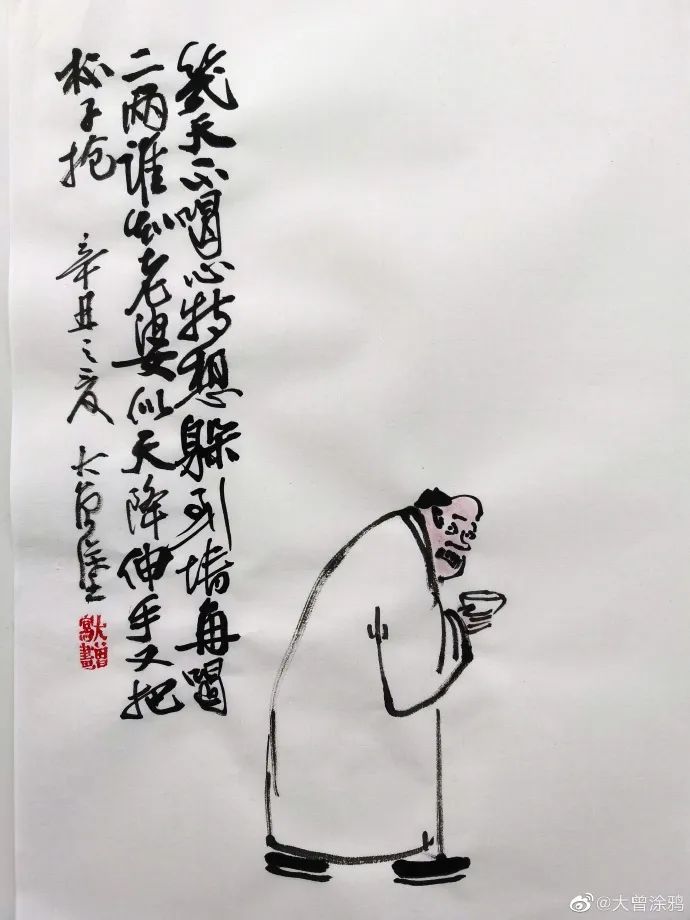 幾天不喝心特想躲到墙角喝
二两谁知老婆似天降伸手又把
杯子抢 辛丑之夏 大曾涂
@大曾涂鸦